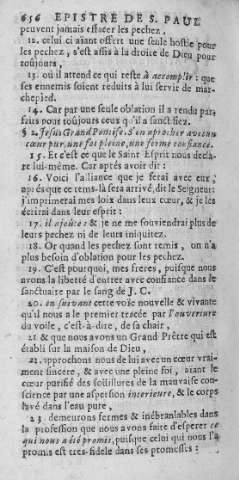 656 EPISTRE DE S. PAUL
peuvent jamais effacer les pechez,
12. celui ci aïant offert une seule hostie pour
les pechez, s'est assis à la droite de Dieu pour
toujours,
13. où il attend ce qui reste à accomplir: que
ses ennemis soient reduits à lui servir de mar-
chepied.
14. Car par une seule oblation il a rendu par-
faits pour toujours ceux qu'il a sanctifiez.
§ 2. Jesus Grand Pontife. S'en aprocher avec un
cœur pur, une foi pleine, une ferme confiance.
15. Et c'est ce que le Saint Esprit nous decla-
re lui-même. Car aprés avoir dit:
16. Voici l'alliance que je ferai avec eux,
aprés que ce tems-là sera arrivé, dit le Seigneur:
j'imprimerai mes loix dans leux cœur, & je les
écrirai dans leur esprit:
17. il ajoûte: & je ne me souviendrai plus de
leurs pechez ni de leurs iniquitez.
18. Or quand les pechez sont remis, on n'a
plus besoin d'oblation pour les pechez.
19. C'est pourquoi, mes freres, puisque nous
avons la liberté d'entrer avec confiance dans le
sanctuaire par le sang de J. C.
20. en suivant cette voie nouvelle & vivante
qu'il nous a le premier tracée par l'ouverture
du voile, c'est-à-dire, de sa chair,
21 & que nous avons un Grand Prêtre qui est
établi sur la maison de Dieu,
22. approchons nous de lui avec un cœur vrai-
ment sincere, & avec une pleine foi, aïant le
cœur purifié des souillures de la mauvaise con-
science par une aspersion interieure, & le corps
lavé dans l'eau pure,
23. demeurons fermes & inébranlables dans
la profession que nous avons faite d'esperer ce
qui nous a été promis, puisque celui qui nous l'a
promis est tres-fidele dans ses promesses: